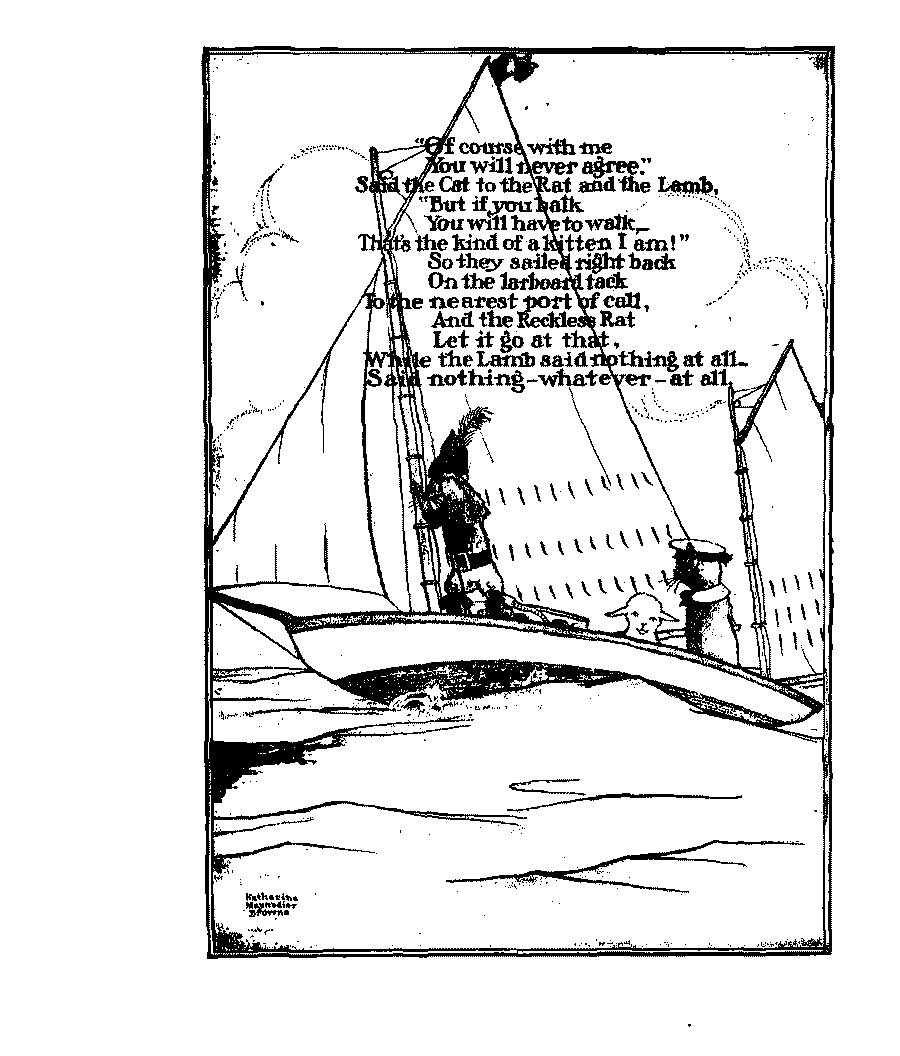 "Of course with me
You will never agree."
Said the Cat to the Rat and the Lamb,
"But if you balk
You will have to walk,—
That's the kind of a kitten I am!"
So they sailed right back
On the larboard tack
To the nearest port of call,
And the Reckless Rat
Let it go at that,
While the Lamb said nothing at all—
Said nothing-whatever-at all.
Katharine
Maynadier
Browne